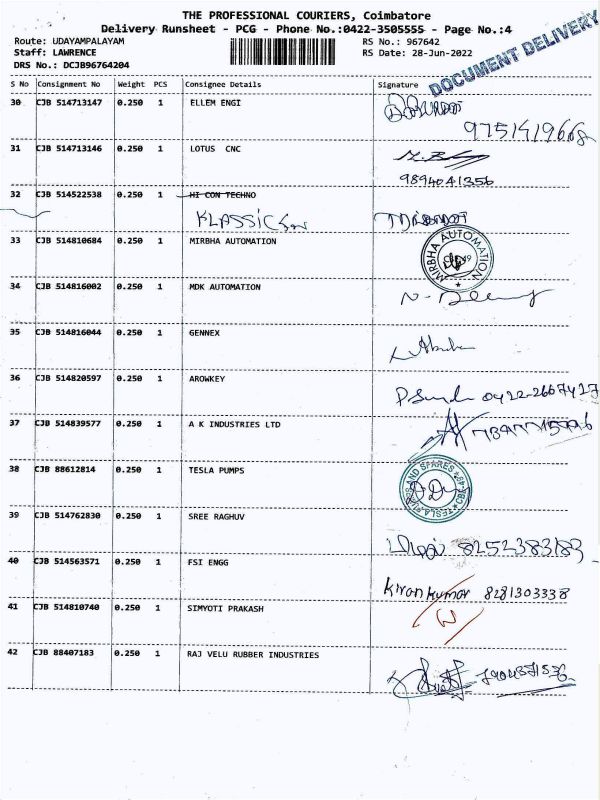 THE PROFESSIONAL COURIERS, Coimbatore
Delivery Runsheet - PCG - Phone No.:0422-3505555 - Page No.:4
Route: UDAYAMPALAYAM RS No.: 967642
Staff: LAWRENCE RS Date: 28-Jun-2022
DRS No.: DCJB96764204
DOCUMENT DELIVERY
S No Consignment No Weight PCS Consignee Details Signature
30 CJB 514713147 0.250 1 ELLEM ENGI
9751419668
31 CJB 514713146 0.250 1 LOTUS CNC
9894041356
32 CJB 514522538 0.250 1 HI CON TECHNO
KLASSIC
33 CJB 514810684 0.250 1 MIRBHA AUTOMATION
MIRBHA AUTOMATION
34 CJB 514816002 0.250 1 MDK AUTOMATION
35 CJB 514816044 0.250 1 GENNEX
36 CJB 514820597 0.250 1 AROWKEY
0422-2667427
37 CJB 514839577 0.250 1 A K INDUSTRIES LTD
38 CJB 88612814 0.250 1 TESLA PUMPS
TESLA PUMPS AND SPARES
39 CJB 514762830 0.250 1 SREE RAGHUV
8252383183
40 CJB 514563571 0.250 1 FSI ENGG
Kiran kumar 8281303338
41 CJB 514810740 0.250 1 SIMYOTI PRAKASH
42 CJB 88407183 0.250 1 RAJ VELU RUBBER INDUSTRIES